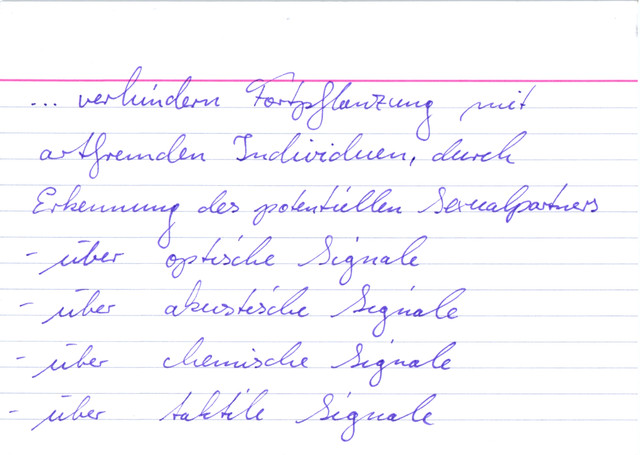 ... verhindern Fortpflanzung mit
artfremden Individuen, durch
Erkennung des potentiellen Sexualpartners
- über optische Signale
- über akustische Signale
- über chemische Signale
- über taktile Signale